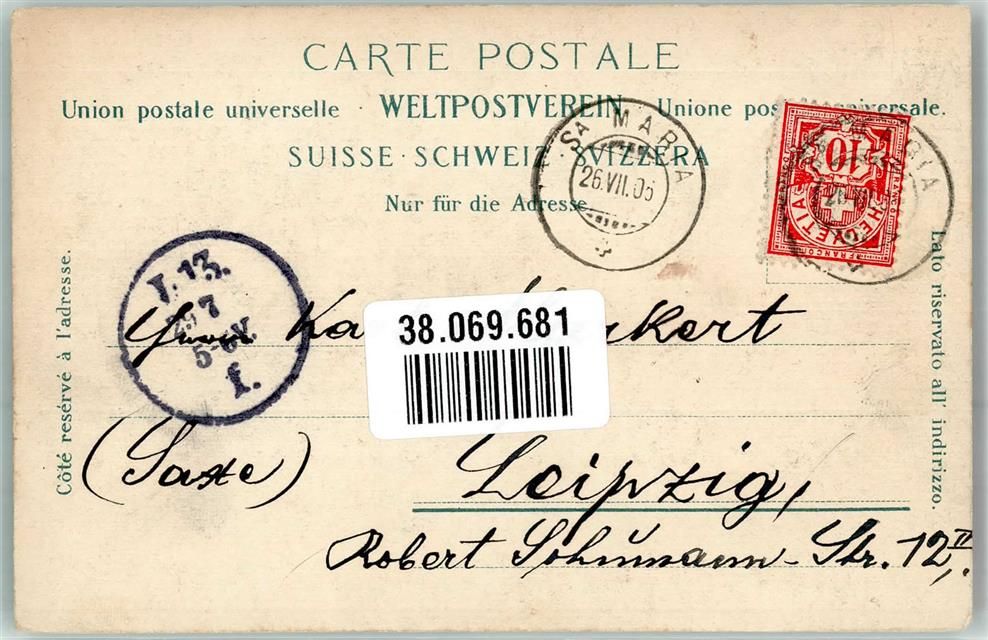 CARTE POSTALE
Union postale universelle · WELTPOSTVEREIN · Unione postale universale.
SUISSE · SCHWEIZ · SVIZZERA
Nur für die Adresse.
Sa MARIA
26.VII.05
10
HELVETIA
FRANCO
MARIA
J. 13.
29 7
5-6V.
f.
Côté resérvé à l'adresse.
Lato riservato all' indirizzo.
38.069.681
Herrn
(Saxe)
Leipzig,
Robert Schumann-Str. 12, II.